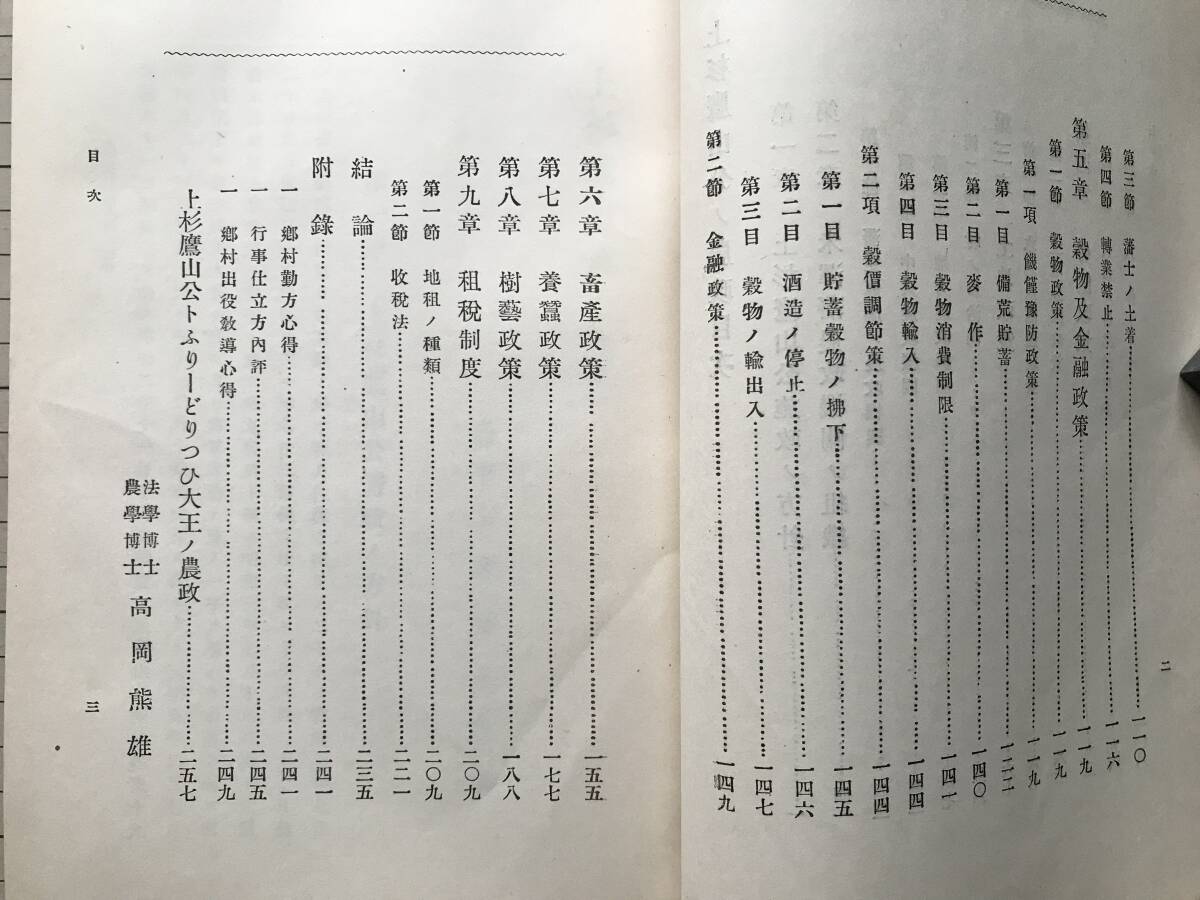 第三節 藩士ノ土着……一一〇
第四節 轉業禁止……一一六
第五章 穀物及金融政策……一一九
第一節 穀物政策……一一九
第一項 饑饉豫防政策……一一九
第一目 備荒貯蓄……一二二
第二目 麥作……一四〇
第三目 穀物消費制限……一四一
第四目 穀物輸入……一四四
第二項 穀價調節策……一四四
第一目 貯蓄穀物ノ拂下……一四五
第二目 酒造ノ停止……一四六
第三目 穀物ノ輸出入……一四七
第二節 金融政策……一四九
二
第六章 畜產政策……一五五
第七章 養蠶政策……一七七
第八章 樹藝政策……一八八
第九章 租稅制度……二〇九
第一節 地租ノ種類……二〇九
第二節 收稅法……二二一
結論……二三五
附錄……二四一
一 鄕村勤方心得……二四一
一 行事仕立方內評……二四五
一 鄕村出役敎導心得……二四九
上杉鷹山公トふりーどりつひ大王ノ農政……二五七
法學博士
農學博士 高岡熊雄
目次
三